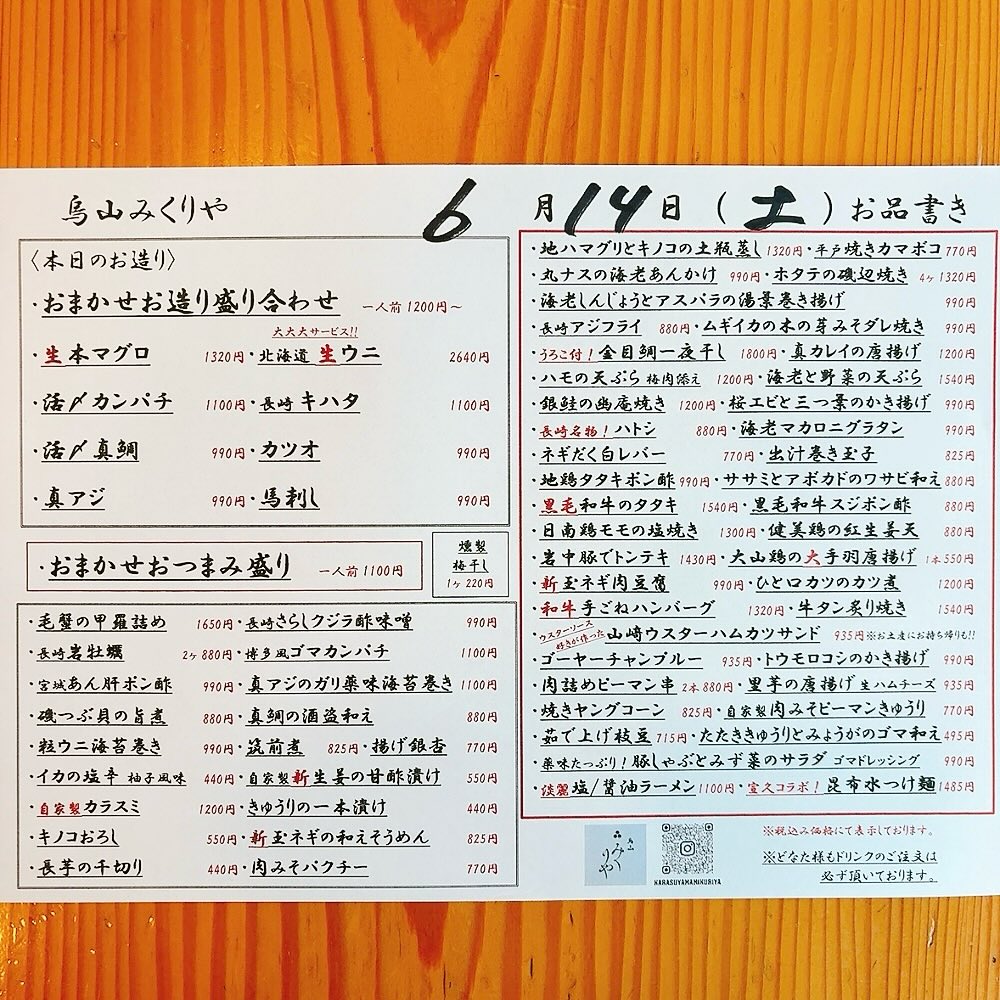 烏山みくりや
6月14日（土）お品書き
〈本日のお造り〉
・おまかせお造り盛り合わせ 一人前1200円～
大大大サービス!!
・生本マグロ 1320円・北海道 生ウニ 2640円
・活〆カンパチ 1100円・長崎 キハタ 1100円
・活〆真鯛 990円・カツオ 990円
・真アジ 990円・馬刺し 990円
・おまかせおつまみ盛り 一人前1100円
燻製
梅干し
1ヶ220円
・毛蟹の甲羅詰め 1650円・長崎さらしクジラ酢味噌 990円
・長崎岩牡蠣 2ヶ880円・博多風ゴマカンパチ 1100円
・宮城あん肝ポン酢 990円・真アジのガリ薬味海苔巻き 1100円
・磯つぶ貝の旨煮 880円・真鯛の酒盗和え 880円
・粒ウニ海苔巻き 990円・筑前煮 825円・揚げ銀杏 770円
・イカの塩辛 柚子風味 440円・自家製新生姜の甘酢漬け 550円
・自家製カラスミ 1200円・きゅうりの一本漬け 440円
・キノコおろし 550円・新玉ネギの和えそうめん 825円
・長芋の千切り 440円・肉みそパクチー 770円
・地ハマグリとキノコの土瓶蒸し 1320円・平戸焼きカマボコ 770円
・丸ナスの海老あんかけ 990円・ホタテの磯辺焼き 4ヶ1320円
・海老しんじょうとアスパラの湯葉巻き揚げ 990円
・長崎アジフライ 880円・ムギイカの木の芽みそダレ焼き 990円
・うろこ付！金目鯛一夜干し 1800円・真カレイの唐揚げ 1200円
・ハモの天ぷら 梅肉添え 1200円・海老と野菜の天ぷら 1540円
・銀鮭の幽庵焼き 1200円・桜エビと三つ葉のかき揚げ 990円
・長崎名物！ハトシ 880円・海老マカロニグラタン 990円
・ネギだく白レバー 770円・出汁巻き玉子 825円
・地鶏タタキポン酢 990円・ササミとアボカドのワサビ和え 880円
・黒毛和牛のタタキ 1540円・黒毛和牛スジポン酢 880円
・日南鶏モモの塩焼き 1300円・健美鶏の紅生姜天 880円
・岩中豚でトンテキ 1430円・大山鶏の大手羽唐揚げ 1本550円
・新玉ネギ肉豆腐 990円・ひと口カツのカツ煮 1200円
・和牛手ごねハンバーグ 1320円・牛タン炙り焼き 1540円
・ウスターソース好きが作った山﨑ウスターハムカツサンド 935円※お土産にお持ち帰りも!!
・ゴーヤーチャンプルー 935円・トウモロコシのかき揚げ 990円
・肉詰めピーマン串 2本880円・里芋の唐揚げ 生ハムチーズ 935円
・焼きヤングコーン 825円・自家製肉みそピーマンきゅうり 770円
・茹で上げ枝豆 715円・たたききゅうりとみょうがのゴマ和え 495円
・薬味たっぷり！豚しゃぶとみず菜のサラダ ゴマドレッシング 990円
・淡麗塩/醤油ラーメン 1100円・宣久コラボ！昆布水つけ麺 1485円
みくりや
KARASUYAMAMIKURIYA
※税込み価格にて表示しております。
※どなた様もドリンクのご注文は
必ず頂いております。